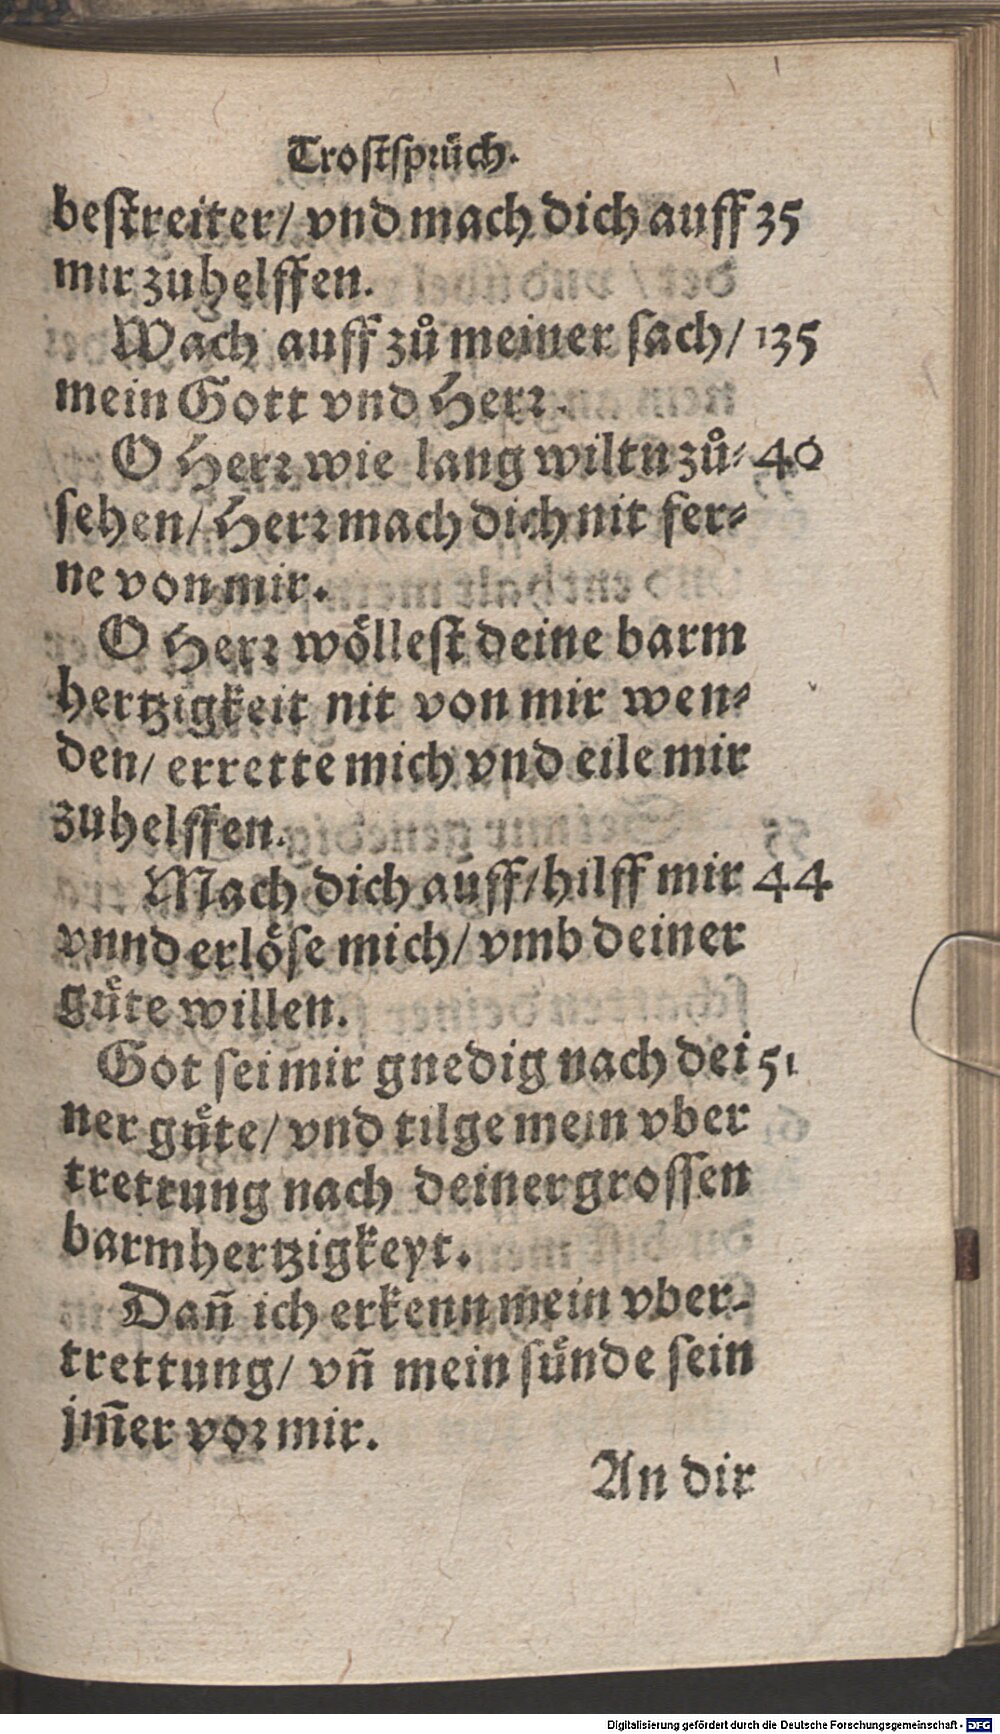 Trostsprüch.
bestreiter/ vnd mach dich auff 35
mir zuhelffen.
Wach auff zů meiner sach/ 135
mein Gott vnd Herr.
O Herr wie lang wiltu zů⸗ 40
sehen/ Herr mach dich nit fer⸗
ne von mir.
O Herr wöllest deine barm
hertzigkeit nit von mir wen⸗
den/ errette mich vnd eile mir
zuhelffen.
Mach dich auff/ hilff mir 44
vnnd erlöse mich/ vmb deiner
güte willen.
Got sei mir gnedig nach dei 51
ner güte/ vnd tilge mein vber
trettung nach deiner grossen
barmhertzigkeyt.
Dañ ich erkenn mein vber-
trettung/ vñ mein sünde sein
jm̃er vor mir.
An dir
Digitalisierung gefördert durch die Deutsche Forschungsgemeinschaft - DFG